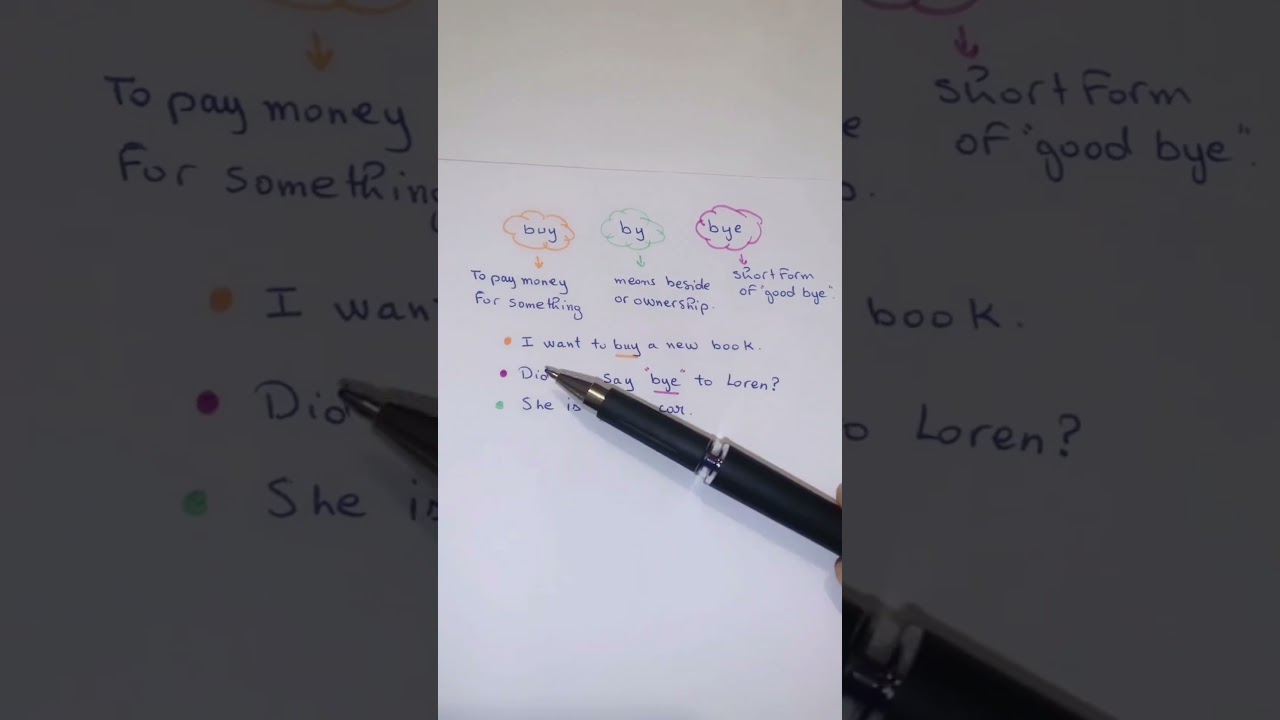 buy
by
bye
To pay money
For something
means beside
or ownership.
short Form
of "good bye".
I want to buy a new book.
Did say "bye" to Loren?
She is car.